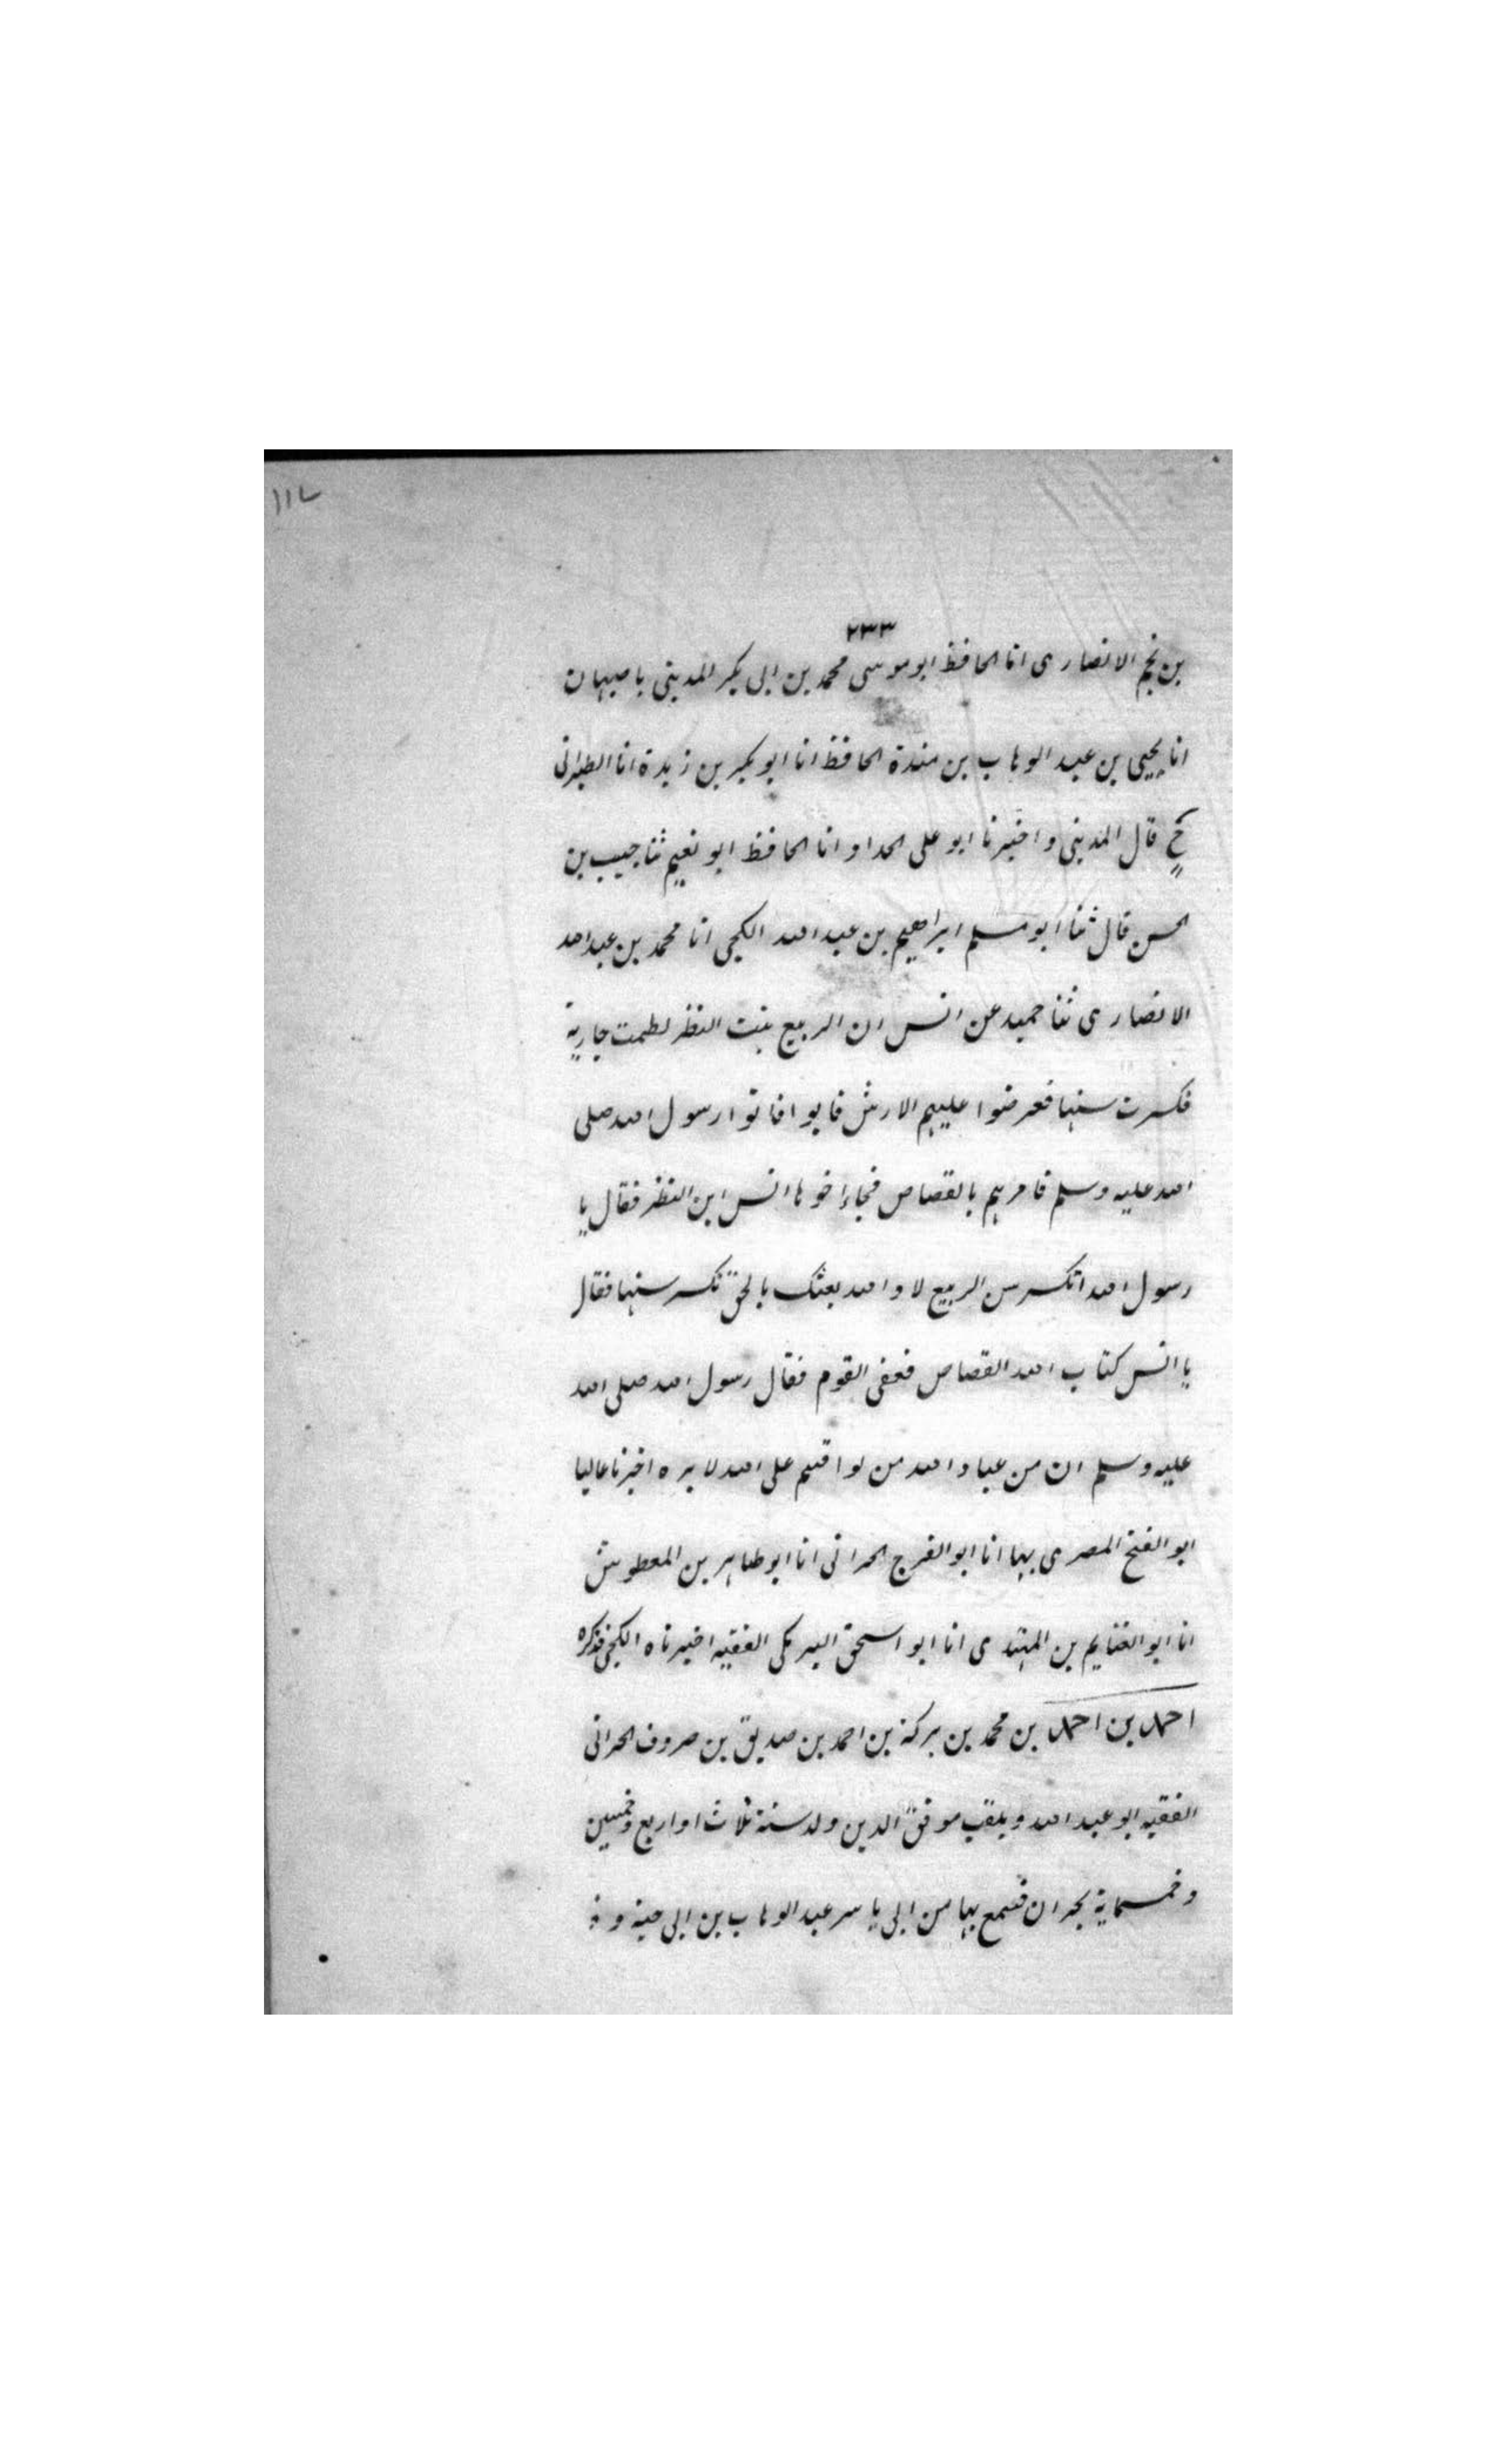 ١١٧
٢٣٣
بن نجم الانصارى انا الحافظ ابو موسى محمد بن ابى بكر المدينى باصبهان
انا يحيى بن عبد الوهاب بن مندة الحافظ انا ابو بكر بن زيدة انا الطبرانى
ح قال المدينى واخبرنا ابو على الحداد انا الحافظ ابو نعيم ثنا حبيب بن
الحسن قال ثنا ابو مسلم ابراهيم بن عبد الله الكجى انا محمد بن عبد الله
الانصارى ثنا حميد عن انس ان الربيع بنت النظر لطمت جارية
فكسرت سنها فعرضوا عليهم الارش فابوا فاتوا رسول الله صلى
الله عليه وسلم فامرهم بالقصاص فجاء اخوها انس ابن النظر فقال يا
رسول الله اتكسر سن الربيع لا والله بعثك بالحق تكسر سنها فقال
يا انس كتاب الله القصاص فعفى القوم فقال رسول الله صلى الله
عليه وسلم ان من عباد الله من لو اقسم على الله لابره اخبرنا عاليا
ابو الفتح المصرى بها انا ابو الفرج الحرانى انا ابو طاهر بن المعطوش
انا ابو الغنايم بن المهتدى انا ابو اسحق البرمكى الفقيه اخبرناه الكجى فذكره
احمد بن احمد بن محمد بن بركة بن احمد بن صديق بن صروف الحرانى
الفقيه ابو عبد الله ويلقب موفق الدين ولد سنة ثلاث او اربع وخمسين
وخمسماية بحران فسمع بها من ابى ياسر عبد الوهاب بن ابى حبة و